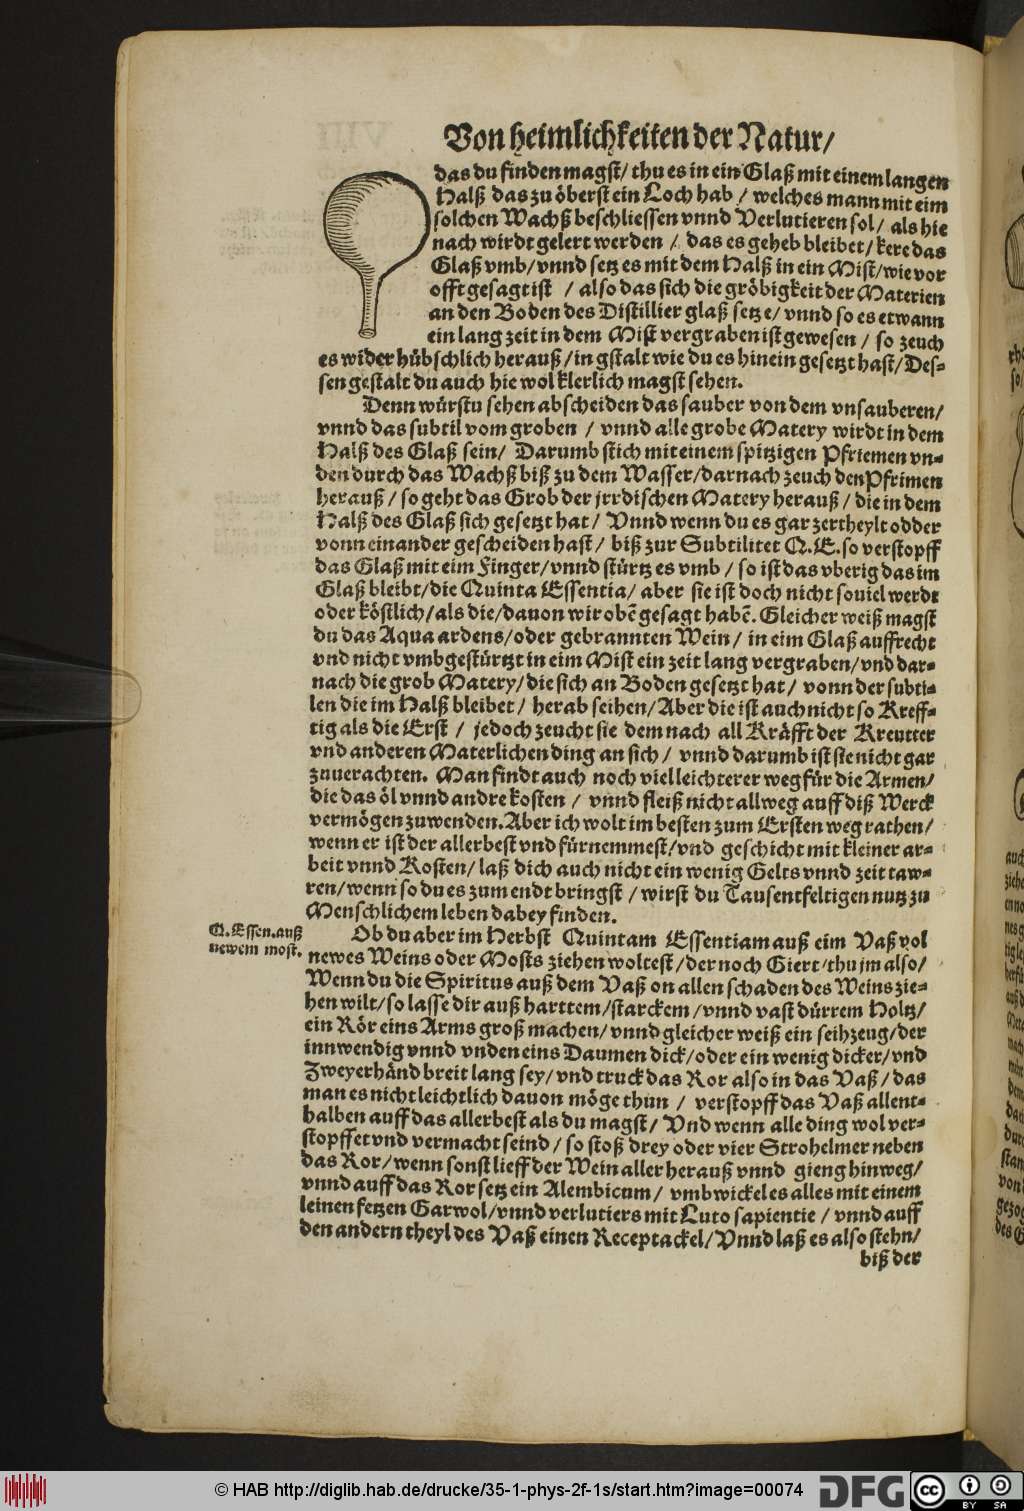 Von heimlichkeiten der Natur/
das du finden magst/ thu es in ein Glaß mit einem langen
Halß das zu öberst ein Loch hab / welches mann mit eim
solchen Wachß beschliessen vnnd Verlutieren sol/ als hie
nach wirdt gelert werden / das es geheb bleibet/ kere das
Glaß vmb/ vnnd setz es mit dem Halß in ein Mist/ wie vor
offt gesagt ist / also das sich die gröbigkeit der Materien
an den Boden des Distillier glaß setze/ vnnd so es etwann
ein lang zeit in dem Mist vergraben ist gewesen / so zeuch
es wider hübschlich herauß/ in gstalt wie du es hinein gesetzt hast/ Des-
sen gestalt du auch hie wol klerlich magst sehen.
Denn würstu sehen abscheiden das sauber von dem vnsauberen/
vnnd das subtil vom groben / vnnd alle grobe Matery wirdt in dem
Halß des Glaß sein/ Darumb stich mit einem spitzigen Pfriemen vn-
den durch das Wachß biß zu dem Wasser/ darnach zeuch den Pfrimen
herauß / so geht das Grob der jrrdischen Matery herauß / die in dem
Halß des Glaß sich gesetzt hat/ Vnnd wenn du es gar zertheylt odder
vonn einander gescheiden hast/ biß zur Subtilitet Q.E. so verstopff
das Glaß mit eim Finger/ vnnd stürtz es vmb / so ist das vberig das im
Glaß bleibt/ die Quinta Essentia/ aber sie ist doch nicht souiel werdt
oder köstlich/ als die/ dauon wir obẽ gesagt habẽ. Gleicher weiß magst
du das Aqua ardens/ oder gebrannten Wein/ in eim Glaß auffrecht
vnd nicht vmbgestürtzt in eim Mist ein zeit lang vergraben/ vnd dar-
nach die grob Matery/ die sich an Boden gesetzt hat/ vonn der subti-
len die im Halß bleibet/ herab seihen/ Aber die ist auch nicht so Kreff-
tig als die Erst / jedoch zeucht sie dem nach all Kräfft der Kreutter
vnd anderen Materlichen ding an sich/ vnnd darumb ist sie nicht gar
zuuerachten. Man findt auch noch viel leichterer weg für die Armen/
die das öl vnnd andre kosten / vnnd fleiß nicht allweg auff diß Werck
vermögen zuwenden. Aber ich wolt im besten zum Ersten weg rathen/
wenn er ist der allerbest vnd fürnemmest/ vnd geschicht mit kleiner ar-
beit vnnd Kosten/ laß dich auch nicht ein wenig Gelts vnnd zeit taw-
ren/ wenn so du es zum endt bringst / wirst du Tausentfeltigen nutz zu
Menschlichem leben dabey finden.
Q. Essen. auß
newem most.
Ob du aber im Herbst Quintam Essentiam auß eim Vaß vol
newes Weins oder Mosts ziehen woltest/ der noch Giert/ thu jm also/
Wenn du die Spiritus auß dem Vaß on allen schaden des Weins zie-
hen wilt/ so lasse dir auß harttem/ starckem/ vnnd vast dürrem Holtz/
ein Rör eins Arms groß machen/ vnnd gleicher weiß ein seihzeug/ der
innwendig vnnd vnden eins Daumen dick/ oder ein wenig dicker/ vnd
Zweyerhänd breit lang sey/ vnd truck das Ror also in das Vaß/ das
man es nicht leichtlich dauon möge thun / verstopff das Vaß allent-
halben auff das allerbest als du magst/ Vnd wenn alle ding wol ver-
stopffet vnd vermacht seind/ so stoß drey oder vier Strohelmer neben
das Ror/ wenn sonst lieff der Wein aller herauß vnnd gieng hinweg/
vnnd auff das Ror setz ein Alembicum/ vmbwickel es alles mit einem
leinen fetzen Gar wol/ vnnd verlutiers mit Luto sapientie / vnnd auff
den andern theyl des Vaß einen Receptackel/ Vnnd laß es also stehn/
biß der
© HAB http://diglib.hab.de/drucke/35-1-phys-2f-1s/start.htm?image=00074
DFG
cc
BY SA